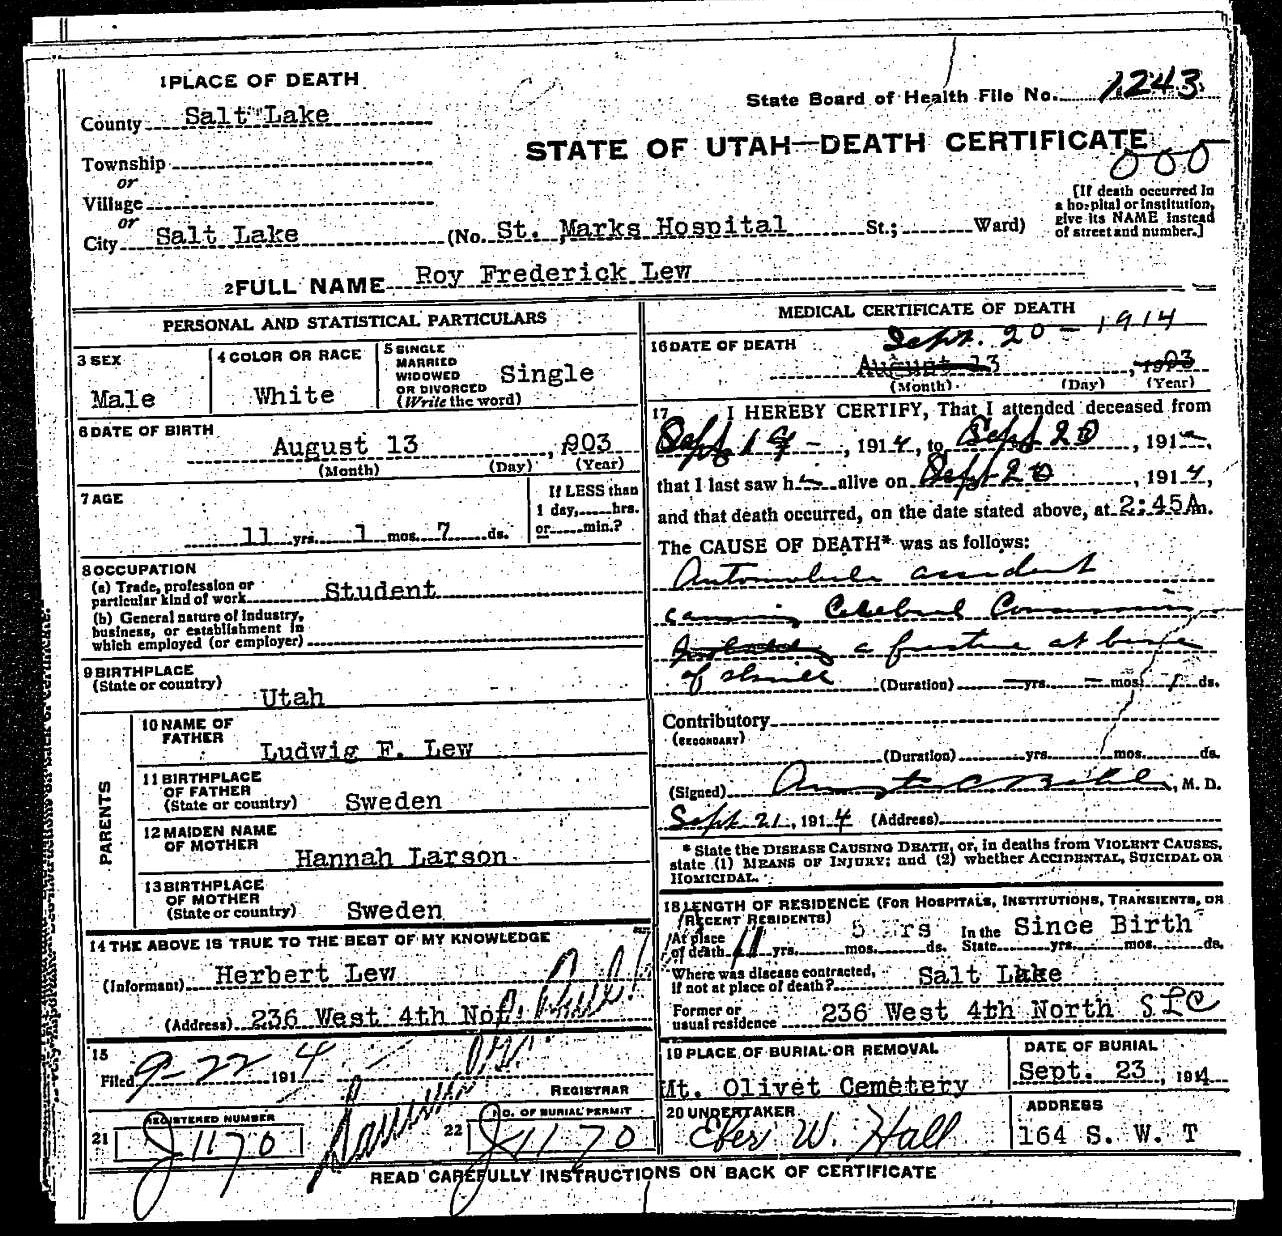 1 PLACE OF DEATH
State Board of Health File No. 1243
County Salt Lake
STATE OF UTAH—DEATH CERTIFICATE
000
Township
or
Village
or
City Salt Lake (No. St. Marks Hospital St.; Ward)
[If death occurred in a hospital or institution, give its NAME instead of street and number.]
2 FULL NAME Roy Frederick Lew
PERSONAL AND STATISTICAL PARTICULARS
3 SEX
Male
4 COLOR OR RACE
White
5 SINGLE
MARRIED
WIDOWED
OR DIVORCED
(Write the word)
Single
6 DATE OF BIRTH
August 13, 1903
(Month) (Day) (Year)
7 AGE
11 yrs. 1 mos. 7 ds.
If LESS than
1 day, hrs.
or min.?
8 OCCUPATION
(a) Trade, profession or
particular kind of work Student
(b) General nature of industry,
business, or establishment in
which employed (or employer)
9 BIRTHPLACE
(State or country)
Utah
PARENTS
10 NAME OF
FATHER
Ludwig F. Lew
11 BIRTHPLACE
OF FATHER
(State or country) Sweden
12 MAIDEN NAME
OF MOTHER
Hannah Larson
13 BIRTHPLACE
OF MOTHER
(State or country) Sweden
14 THE ABOVE IS TRUE TO THE BEST OF MY KNOWLEDGE
(Informant) Herbert Lew
(Address) 236 West 4th No.
15
Filed 9-22 1914
REGISTRAR
REGISTERED NUMBER
21 J1170
NO. OF BURIAL PERMIT
22 J1170
MEDICAL CERTIFICATE OF DEATH
16 DATE OF DEATH
Sept. 20 - 1914
August 13, 1903
(Month) (Day) (Year)
17 I HEREBY CERTIFY, That I attended deceased from
Sept 19 -, 1914, to Sept 20, 191
that I last saw h alive on Sept 20, 1914,
and that death occurred, on the date stated above, at 2:45A m.
The CAUSE OF DEATH* was as follows:
Automobile accident
causing Cerebral Concussion
a fracture at base
of skull (Duration) - yrs. - mos. 1 ds.
Contributory
(SECONDARY)
(Duration) yrs. mos. ds.
(Signed) , M. D.
Sept 21, 1914 (Address)
* State the DISEASE CAUSING DEATH, or, in deaths from VIOLENT CAUSES,
state (1) MEANS OF INJURY; and (2) whether ACCIDENTAL, SUICIDAL OR
HOMICIDAL.
18 LENGTH OF RESIDENCE (FOR HOSPITALS, INSTITUTIONS, TRANSIENTS, OR
RECENT RESIDENTS)
At place
of death 11 yrs. mos. ds. In the State Since Birth yrs. mos. ds.
Where was disease contracted,
if not at place of death? Salt Lake
Former or
usual residence 236 West 4th North SLC
19 PLACE OF BURIAL OR REMOVAL
Mt. Olivet Cemetery
DATE OF BURIAL
Sept. 23, 1914
20 UNDERTAKER
Eber W. Hall
ADDRESS
164 S. W. T
READ CAREFULLY INSTRUCTIONS ON BACK OF CERTIFICATE